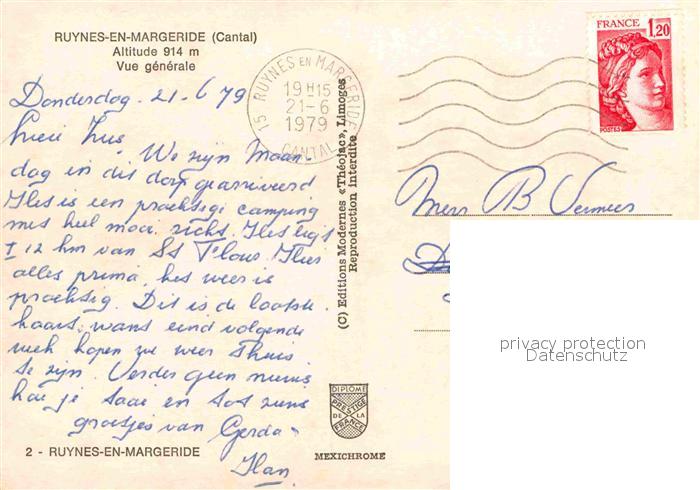 RUYNES-EN-MARGERIDE (Cantal)
Altitude 914 m
Vue générale
Donderdag. 21-6 79
We zijn Maan-
dag in dit dorp gearriveerd
Het is een prachtige camping
met heel mooi zicht. Het ligt
± 12 km van St Flour. Hier
alles prima, het weer is
prachtig. Dit is de laatste
kaart, want eind volgende
week hopen we weer thuis
te zijn. Verder geen nieuws
en tot ziens
groetjes van Gerda
Han
2 - RUYNES-EN-MARGERIDE
15 RUYNES EN MARGERIDE
19 H 15
21-6
1979
CANTAL
(C) Editions Modernes «Théojac», Limoges
Reproduction Interdite
DIPLOME
PRESTIGE
DE LA
FRANCE
MEXICHROME
FRANCE
1,20
POSTES
B Vermeer
privacy protection
Datenschutz